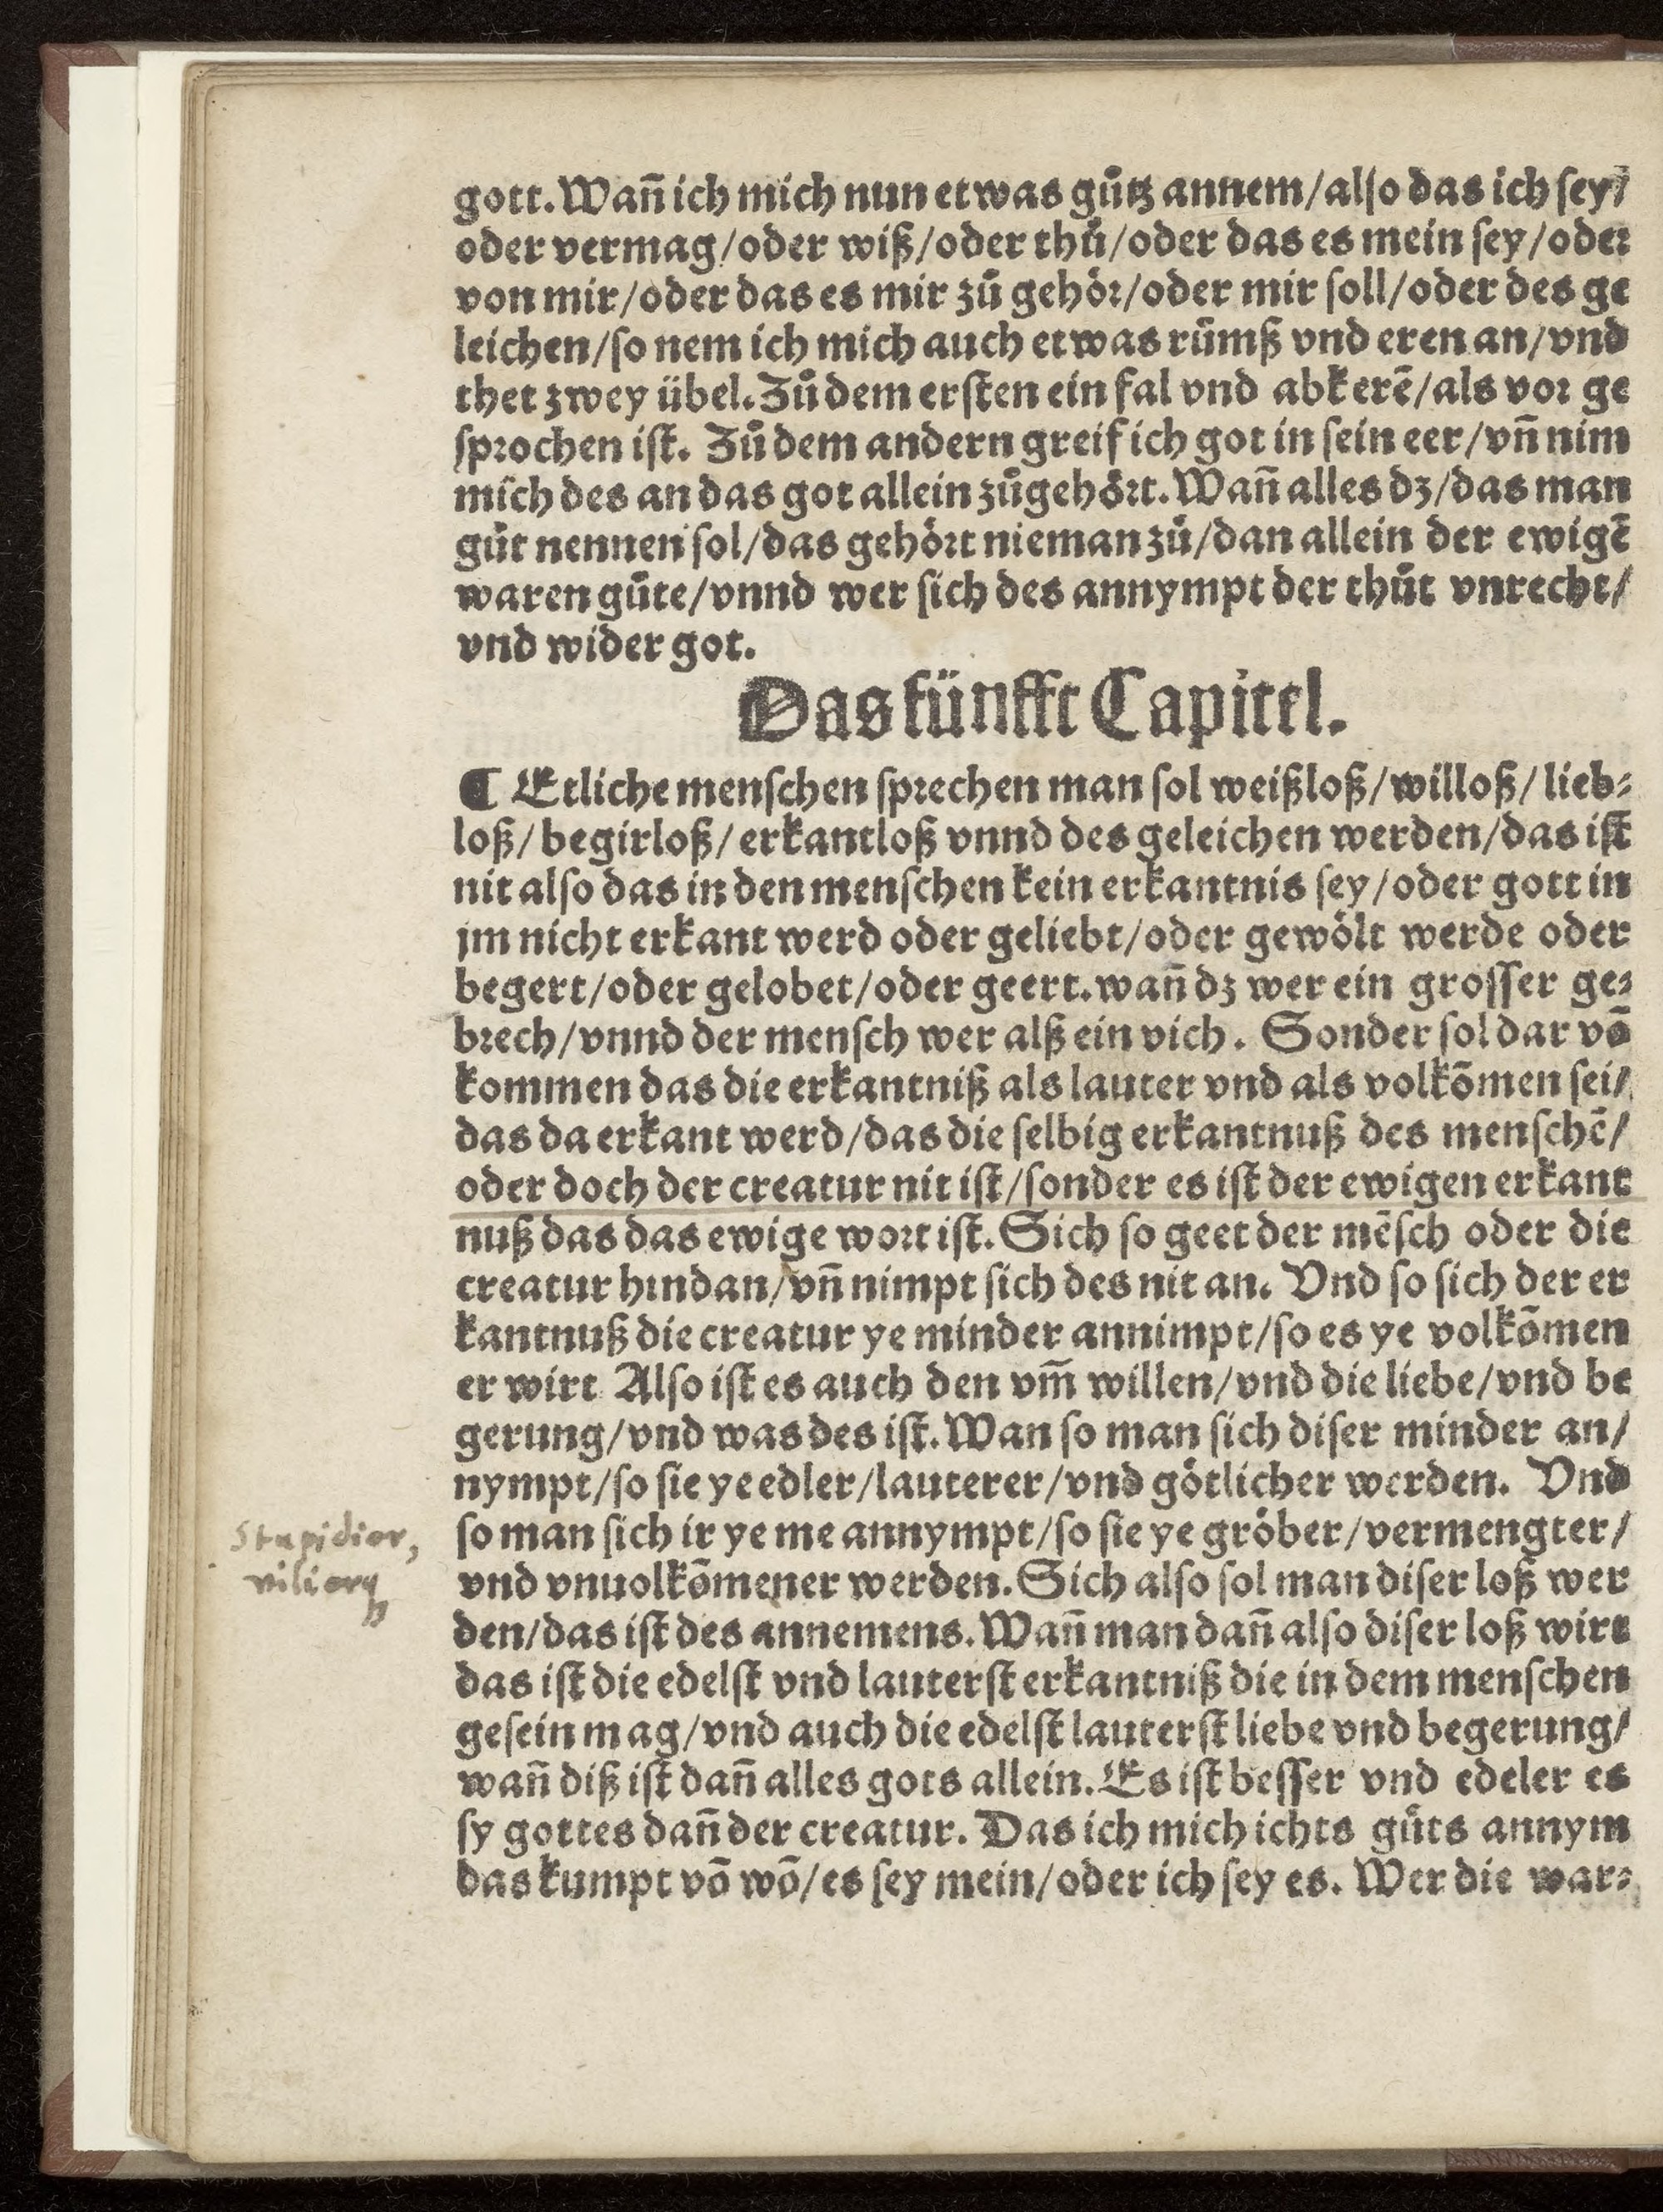 gott. Wañ ich mich nun etwas gůtz annem/also das ich sey/
oder vermag/oder wiß/oder thů/oder das es mein sey/oder
von mir/oder das es mir zů gehör/oder mir soll/oder des ge
leichen/so nem ich mich auch etwas růmß vnd eren an/vnd
thet zwey übel. Zů dem ersten ein fal vnd abkerē/als vor ge
sprochen ist. Zů dem andern greif ich got in sein eer/vñ nim
mich des an das got allein zůgehört. Wañ alles dz/das man
gůt nennen sol/das gehört nieman zů/dan allein der ewigē
waren gůte/vnnd wer sich des annympt der thůt vnrecht/
vnd wider got.
Das fünfft Capitel.
¶ Etliche menschen sprechen man sol weißloß/willoß/lieb⸗
loß/begirloß/erkantloß vnnd des geleichen werden/das ist
nit also das in den menschen kein erkantnis sey/oder gott in
jm nicht erkant werd oder geliebt/oder gewölt werde oder
begert/oder gelobet/oder geert. wañ dz wer ein grosser ge⸗
brech/vnnd der mensch wer alß ein vich. Sonder sol dar vō
kommen das die erkantniß als lauter vnd als volkōmen sei/
das da erkant werd/das die selbig erkantnuß des menschē/
oder doch der creatur nit ist/sonder es ist der ewigen erkant
nuß das das ewige wort ist. Sich so geet der mēsch oder die
creatur hindan/vñ nimpt sich des nit an. Vnd so sich der er
kantnuß die creatur ye minder annimpt/so es ye volkōmen
er wirt Also ist es auch den vm̄ willen/vnd die liebe/vnd be
gerung/vnd was des ist. Wan so man sich diser minder an/
nympt/so sie ye edler/lauterer/vnd götlicher werden. Vnd
so man sich ir ye me annympt/so sie ye gröber/vermengter/
vnd vnuolkōmener werden. Sich also sol man diser loß wer
den/das ist des annemens. Wañ man dañ also diser loß wirt
das ist die edelst vnd lauterst erkantniß die in dem menschen
gesein mag/vnd auch die edelst lauterst liebe vnd begerung/
wañ diß ist dañ alles gots allein. Es ist besser vnd edeler es
sy gottes dañ der creatur. Das ich mich ichts gůts annym
das kumpt vō wō/es sey mein/oder ich sey es. Wer die war⸗
Stupidior,